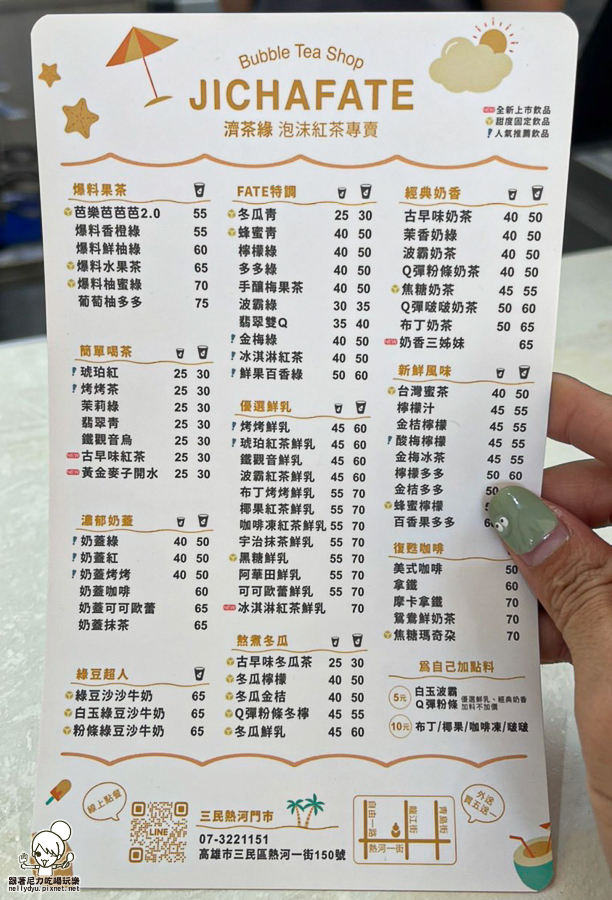 Bubble Tea Shop
JICHAFATE
濟茶緣 泡沫紅茶專賣
NEW 全新上市飲品
甜度固定飲品
人氣推薦飲品
爆料果茶
芭樂芭芭芭2.0 55
爆料香橙綠 55
爆料鮮柚綠 60
爆料水果茶 65
爆料柚蜜綠 70
葡萄柚多多 75
簡單喝茶
琥珀紅 25 30
烤烤茶 25 30
茉莉綠 25 30
翡翠青 25 30
鐵觀音烏 25 30
NEW 古早味紅茶 25 30
NEW 黃金麥子開水 25 30
濃郁奶蓋
奶蓋綠 40 50
奶蓋紅 40 50
奶蓋烤烤 40 50
奶蓋咖啡 60
奶蓋可可歐蕾 65
奶蓋抹茶 65
綠豆超人
綠豆沙沙牛奶 65
白玉綠豆沙牛奶 65
粉條綠豆沙牛奶 65
FATE特調
冬瓜青 25 30
蜂蜜青 40 50
檸檬綠 40 50
多多綠 40 50
手釀梅果茶 40 50
波霸綠 30 35
翡翠雙Q 35 40
金梅綠 40 50
冰淇淋紅茶 40 50
鮮果百香綠 50 60
優選鮮乳
烤烤鮮乳 45 60
琥珀紅茶鮮乳 45 60
鐵觀音鮮乳 45 60
波霸紅茶鮮乳 45 60
布丁烤烤鮮乳 55 70
椰果紅茶鮮乳 55 70
咖啡凍紅茶鮮乳 55 70
宇治抹茶鮮乳 55 70
黑糖鮮乳 55 70
阿華田鮮乳 55 70
可可歐蕾鮮乳 55 70
NEW 冰淇淋紅茶鮮乳 70
熬煮冬瓜
古早味冬瓜茶 25 30
冬瓜檸檬 40 50
冬瓜金桔 40 50
Q彈粉條冬檸 45 55
冬瓜鮮乳 45 60
經典奶香
古早味奶茶 40 50
茉香奶綠 40 50
波霸奶茶 40 50
Q彈粉條奶茶 40 50
焦糖奶茶 45 55
Q彈啵啵奶茶 50 60
布丁奶茶 50 65
NEW 奶香三姊妹 65
新鮮風味
台灣蜜茶 40 50
檸檬汁 45 55
金桔檸檬 45 55
酸梅檸檬 45 55
金梅冰茶 45 55
檸檬多多 50 60
金桔多多 50
蜂蜜檸檬
百香果多多
復甦咖啡
美式咖啡 50
拿鐵 60
摩卡拿鐵 70
鴛鴦鮮奶茶 70
焦糖瑪奇朶 70
為自己加點料
5元 白玉波霸
Q彈粉條
優選鮮乳、經典奶香
加料不加價
10元 布丁/椰果/咖啡凍/啵啵
線上點餐
LINE
三民熱河門市
07-3221151
高雄市三民區熱河一街150號
自由一路
龍江街
青島街
熱河一街
外送
買五送一
跟著尼力吃喝玩樂
nellydyu.pixnet.net